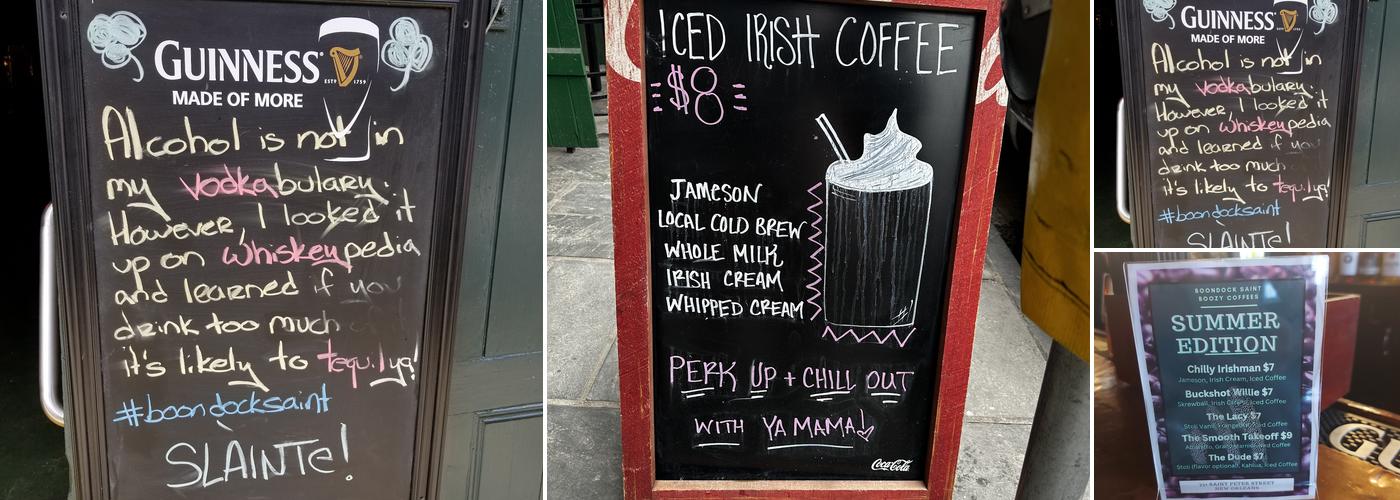 GUINNESS
ESTD 1759
MADE OF MORE
Alcohol is not in
my vodkabulary.
However, I looked it
up on whiskeypedia
and learned if you
drink too much
it's likely to tequilya!
#boondocksaint
SLAINTE!
ICED IRISH COFFEE
$8
JAMESON
LOCAL COLD BREW
WHOLE MILK
IRISH CREAM
WHIPPED CREAM
PERK UP + CHILL OUT
WITH YA MAMA!
Coca-Cola
GUINNESS
MADE OF MORE
Alcohol is not in
my vodkabulary.
However, I looked it
up on whiskeypedia
and learned if you
drink too much
it's likely to tequilya!
#boondocksaint
SLAINTE!
BOONDOCK SAINT
BOOZY COFFEES
SUMMER
EDITION
Chilly Irishman $7
Jameson, Irish Cream, Iced Coffee
Buckshot Willie $7
Skrewball, Irish Cream, Iced Coffee
The Lacy $7
Stoli Vanil, Frangelico, Iced Coffee
The Smooth Takeoff $9
Amaretto, Grand Marnier, Iced Coffee
The Dude $7
Stoli (flavor optional), Kahlua, Iced Coffee
SAINT PETER STREET
NEW ORLEANS